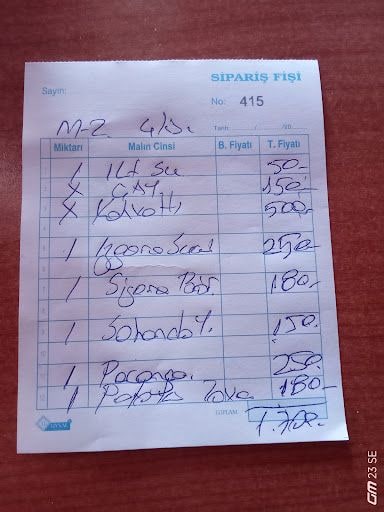 SİPARİŞ FİŞİ
Sayın:
No: 415
M-2 4 kişi.
Tarih: / /20
Miktarı Malın Cinsi B. Fiyatı T. Fiyatı
1 1 Lt Su 50-
X ÇAY 150-
X Kahvaltı 500-
1 250-
1 Sigara Bör. 180-
1 Sahanda Y. 150.
1 250-
1 Patates Tava 180-
TOPLAM 1.700.
CIM 23 SE